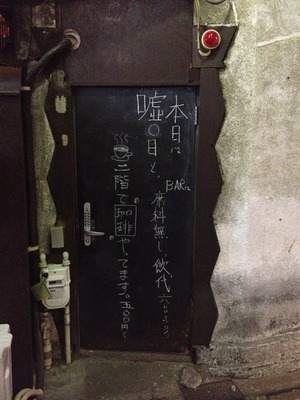 本日は
嘘〇日と、
BARは
席料無し、飲代
六〇〇より
二階で珈琲やってます。五〇〇円〜